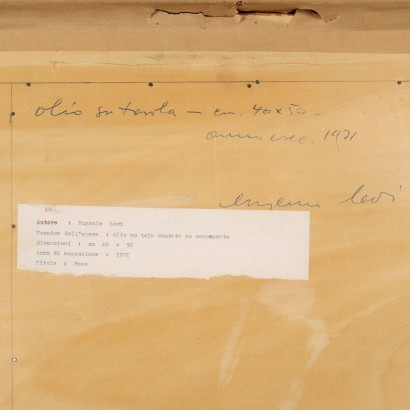 olio su tavola - cm. 40x50.
anno esec. 1971
Eugenio Levi
Autore : Eugenio Levi
Tecnica dell'opera : olio su tela
Dimensioni : cm 40 x 50
Anno di esecuzione :
Titolo :